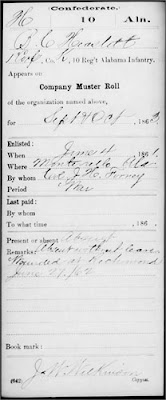 Confederate.
H 10 Ala.
R. C. Hewlett
Pvt, Co. K, 10 Reg't Alabama Infantry.
Appears on
Company Muster Roll
of the organization named above,
for Sept & Oct, 186
Enlisted:
When June 4, 1861.
Where Montevallo, Ala.
By whom Col J. H. Forney
Period War
Last paid:
By whom
To what time , 186 .
Present or absent Absent
Remarks: Absent without leave
Wounded at Richmond
June 27, '62
Book mark:
J. W. Wilkinson
(642) Copyist.